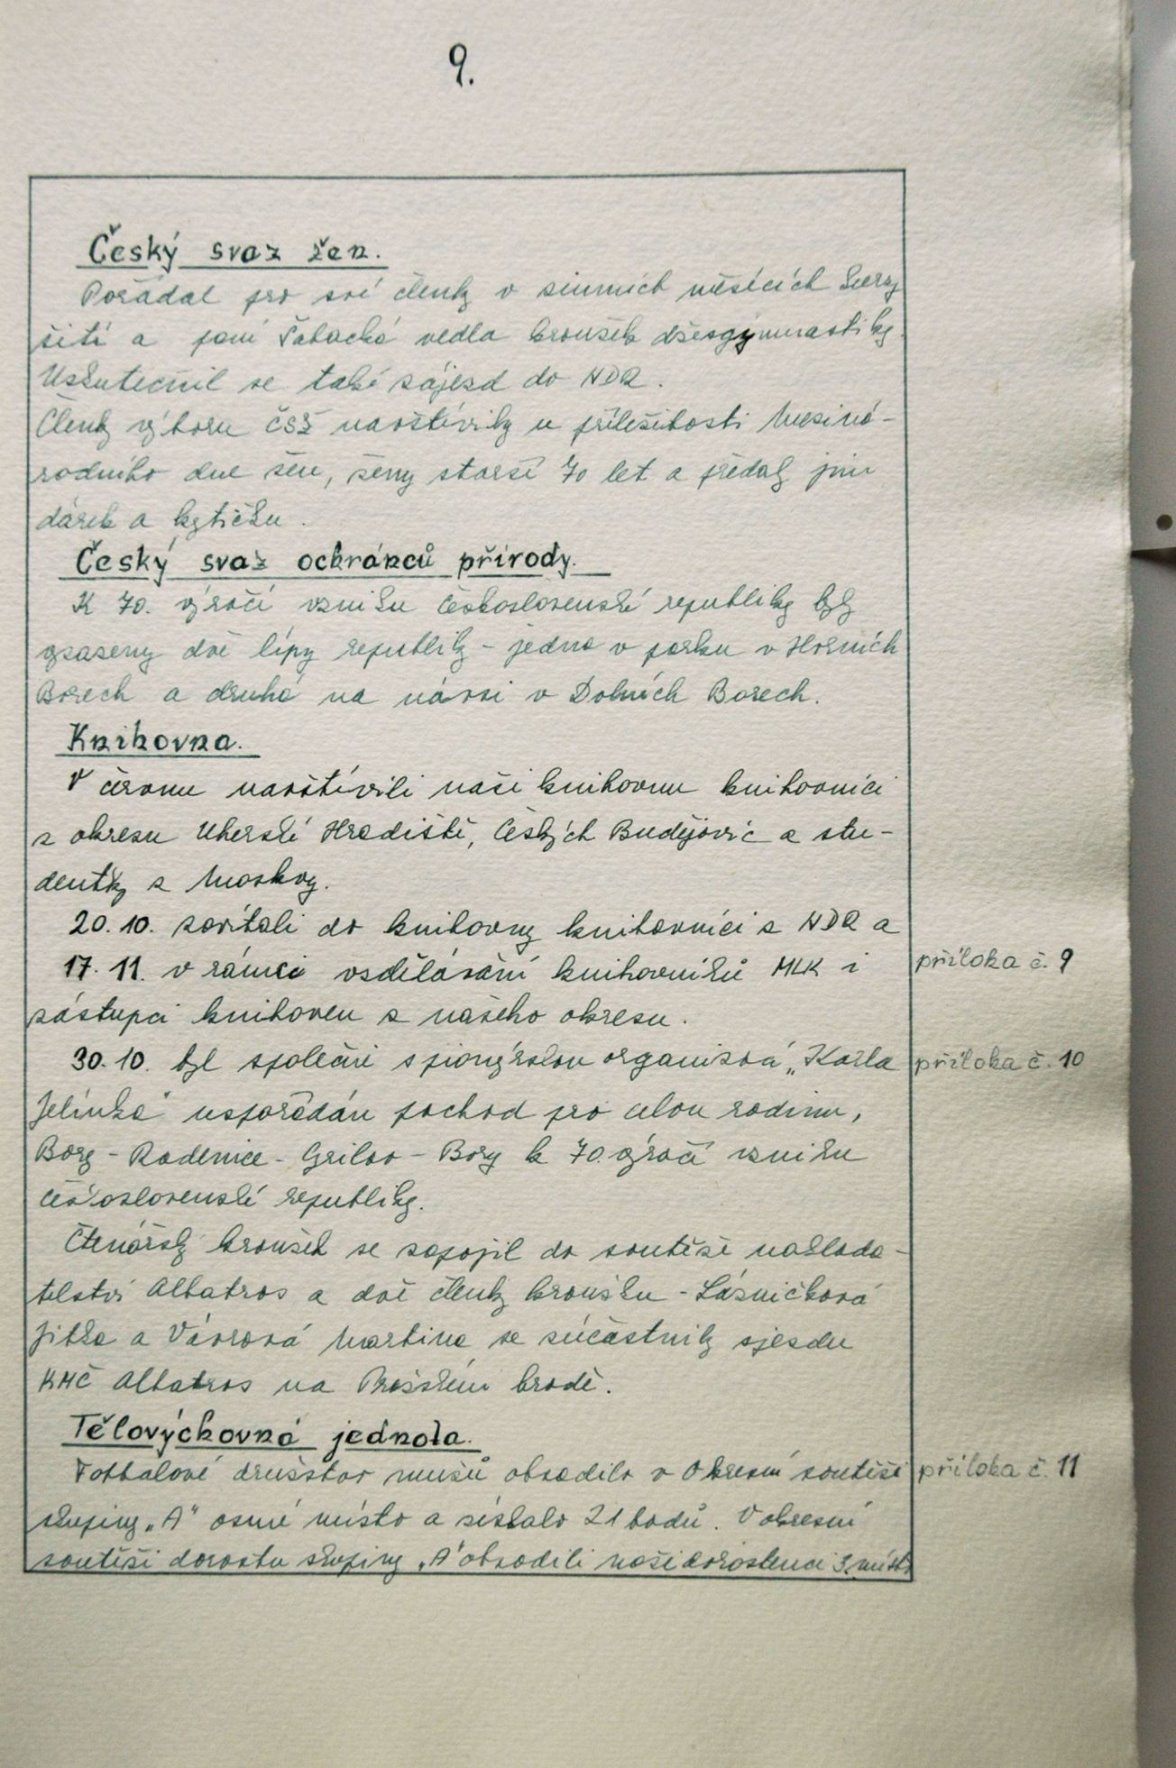 9.
Český svaz žen.
Pořádal pro své členky v zimních měsících kurzy
šití a paní Tabacká vedla kroužek džezgymnastiky.
Uskutečnil se také zájezd do NDR.
Členky výboru ČSŽ navštívily u příležitosti Meziná-
rodního dne žen, ženy starší 70 let a předaly jim
dárek a kytičku.
Český svaz ochránců přírody.
K 70. výročí vzniku Československé republiky byly
vysazeny dvě lípy republiky - jedna v parku v Horních
Borech a druhá na návsi v Dolních Borech.
Knihovna.
V červnu navštívili naši knihovnu knihovníci
z okresu Uherské Hradiště, Českých Budějovic a stu-
dentky z Moskvy.
20.10. zavítali do knihovny knihovníci z NDR a
17.11. v rámci vzdělávání knihovníků MLK i
příloha č. 9
zástupci knihoven z našeho okresu.
30.10. byl společně s pionýrskou organizací „Karla
příloha č. 10
Jelínka" uspořádán pochod pro celou rodinu,
Bory - Radenice - Grilov - Bory k 70. výročí vzniku
Československé republiky.
Čtenářský kroužek se zapojil do soutěže naklada-
telství Albatros a dvě členky kroužku - Lázničková
Jitka a Vávrová Martina se zúčastnily sjezdu
KMČ Albatros na Pražském hradě.
Tělovýchovná jednota.
Fotbalové družstvo mužů obsadilo v Okresní soutěži
příloha č. 11
skupiny „A" osmé místo a získalo 21 bodů. V okresní
soutěži dorostu skupiny „A" obsadili naši dorostenci 3. místo